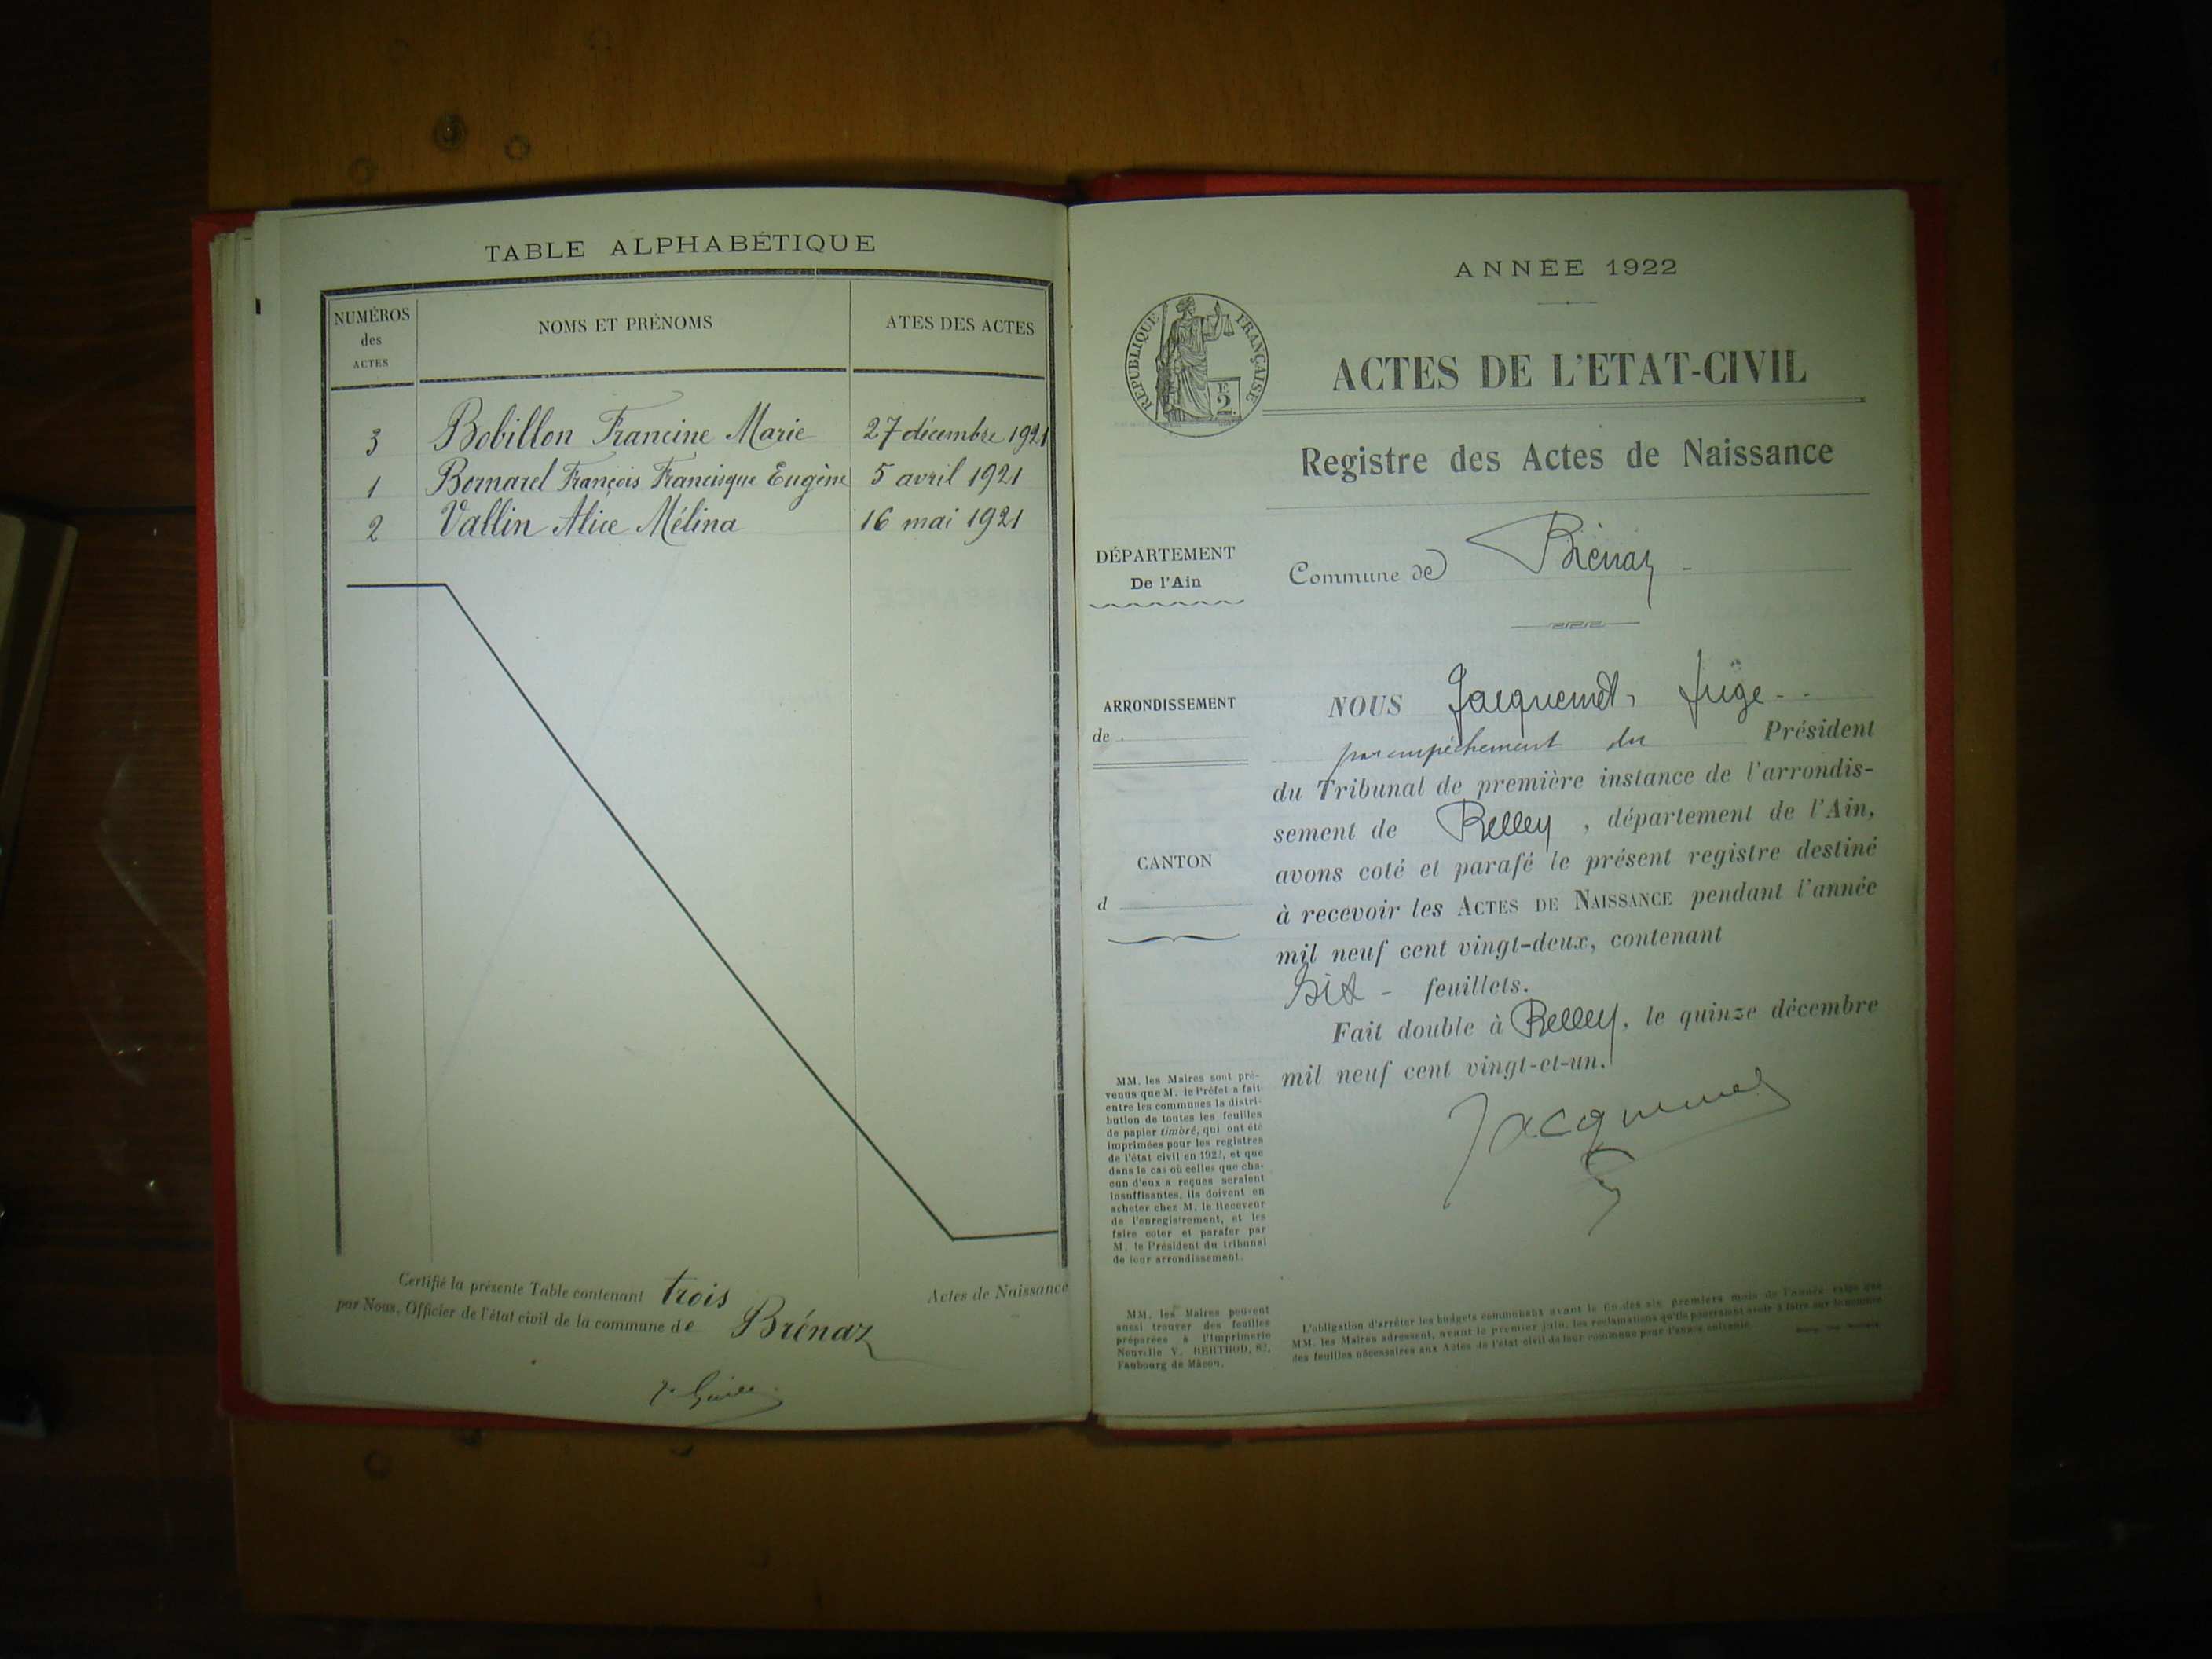 TABLE ALPHABÉTIQUE
NUMÉROS
des
ACTES
NOMS ET PRÉNOMS
ATES DES ACTES
3 Bobillon Francine Marie 27 décembre 1921
1 Bornarel François Francisque Eugène 5 avril 1921
2 Vallin Alice Mélina 16 mai 1921
Certifié la présente Table contenant trois Actes de Naissance
par Nous, Officier de l'état civil de la commune de Brénaz
ANNÉE 1922
RÉPUBLIQUE FRANÇAISE
2
ACTES DE L'ETAT-CIVIL
Registre des Actes de Naissance
DÉPARTEMENT
De l'Ain
Commune de Brénaz
ARRONDISSEMENT
de
CANTON
d
NOUS Jacquemet, Juge
par empêchement du Président
du Tribunal de première instance de l'arrondis-
sement de Belley, département de l'Ain,
avons coté et parafé le présent registre destiné
à recevoir les ACTES DE NAISSANCE pendant l'année
mil neuf cent vingt-deux, contenant
Six - feuillets.
Fait double à Belley, le quinze décembre
mil neuf cent vingt-et-un.
Jacquemet
MM. les Maires sont pré-
venus que M. le Préfet a fait
entre les communes la distri-
bution de toutes les feuilles
de papier timbré, qui ont été
imprimées pour les registres
de l'état civil en 1922, et que
dans le cas où celles que cha-
cun d'eux a reçues seraient
insuffisantes, ils doivent en
acheter chez M. le Receveur
de l'enregistrement, et les
faire coter et parafer par
M. le Président du tribunal
de leur arrondissement.
MM. les Maires peuvent
aussi trouver des feuilles
préparées à l'Imprimerie
Nouvelle V. BERTHOD, 87,
Faubourg de Mâcon.
L'obligation d'arrêter les budgets communaux avant la fin des six premiers mois de l'année exige que
MM. les Maires adressent, avant le premier juin, les réclamations qu'ils pourraient avoir à faire sur le nombre
des feuilles nécessaires aux Actes de l'état civil de leur commune pour l'année suivante.